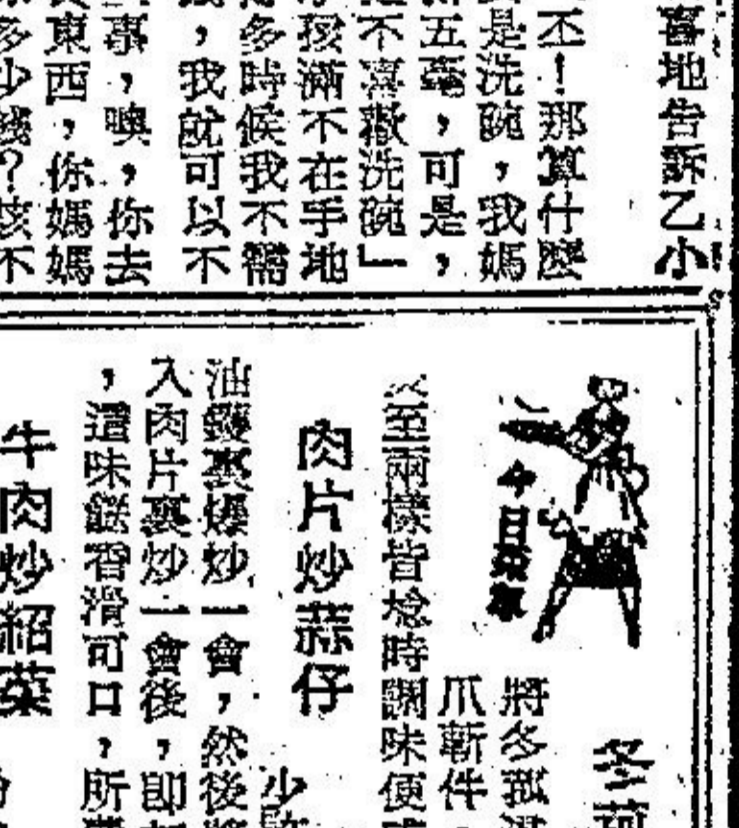 喜地告訴乙小
丕！那算什麼
是洗碗，我媽
五毫，可是，
不喜歡洗碗」
孩滿不在乎地
多時候我不需
，我就可以不
事，噢，你去
東西，你媽媽
多少錢？該不
今日菜單
冬菰
將冬菰浸
爪斬件，
至兩樣皆稔時調味便
肉片炒蒜仔
油鑊裏爆炒一會，然後將
入肉片裏炒一會後，即
，這味餸香滑可口，所
牛肉炒紹菜